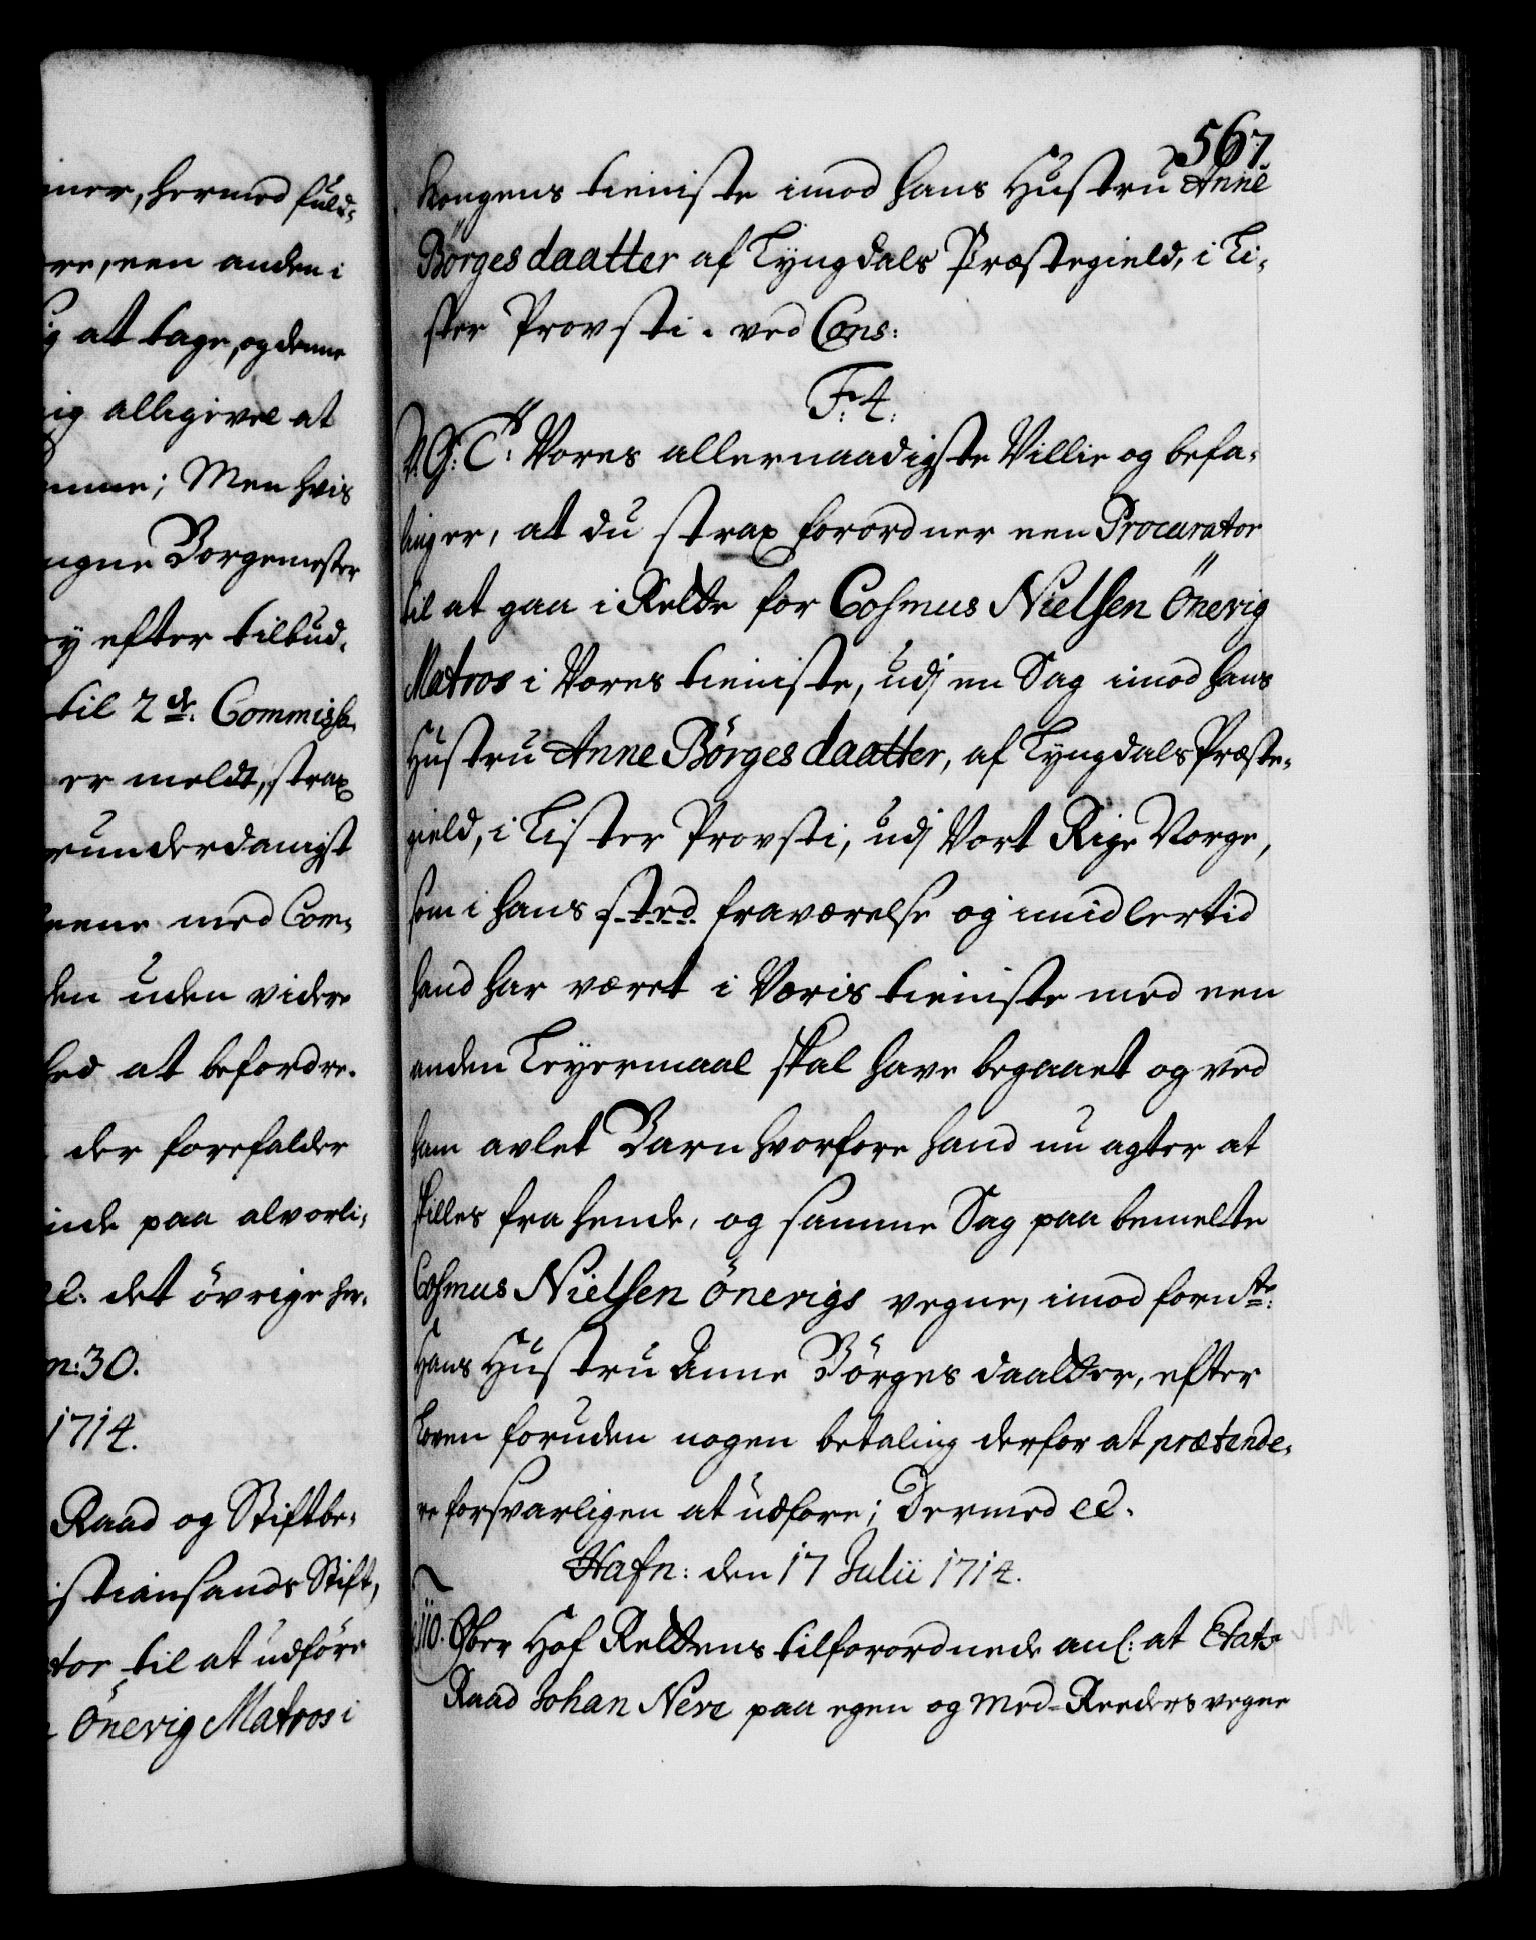 iner, hermed fuld-
re, een anden i
ig att tage, og denne
ig alligevel at
mme; Men hvis
ugne Borgemester
y efter tilbud.
til 2de: Commiss.
er meldt, strax
runderdanigst
eene med Com-
den uden videre
hed at befordre.
der forefalder
inde paa alvorli-
el. det övrige her-
n: 30.
1714.
Raad og Stiftbe-
istiansands Stift,
tor til at udföre
Önerig Matros i
567.
Kongens tieniste imod hans Hustru Anne
Börges daatter af Lyngdals Præstegield, i Li-
ster Provsti. ved Cons:
F. 4.
V. G: T: Vores allernaadigste Villie og befa-
ling er, at du strax forordner een Procurator
til at gaa i Rette for Cosmus Nielsen Önerig
Matros i Vores tieniste, udj en Sag imod hans
Hustru Anne Börges daatter, af Lyngdals Præste-
gield, i Lister Provsti, udj Vort Rige Norge,
som i hans sted fraværelse og imidlertid
hand har været i Voris tieniste med een
anden Leyermaal skal have begaaet og ved
ham avlet Barn hvorfore hand nu agter at
skilles fra hende, og samme Sag paa bemelte
Cosmus Nielsen Önerigs vegne, imod fornte:
Hans Hustru Anne Börges daatter, efter
Loven foruden nogen betaling derfor at prætende-
re forsvarligen at udföre; Dermed el.
Hafn: den 17 Julii 1714.
110. Ober Hof Rettens tilforordnede anl: at Etats
Raad Johan Nere paa egen og Med-Reeders vegne